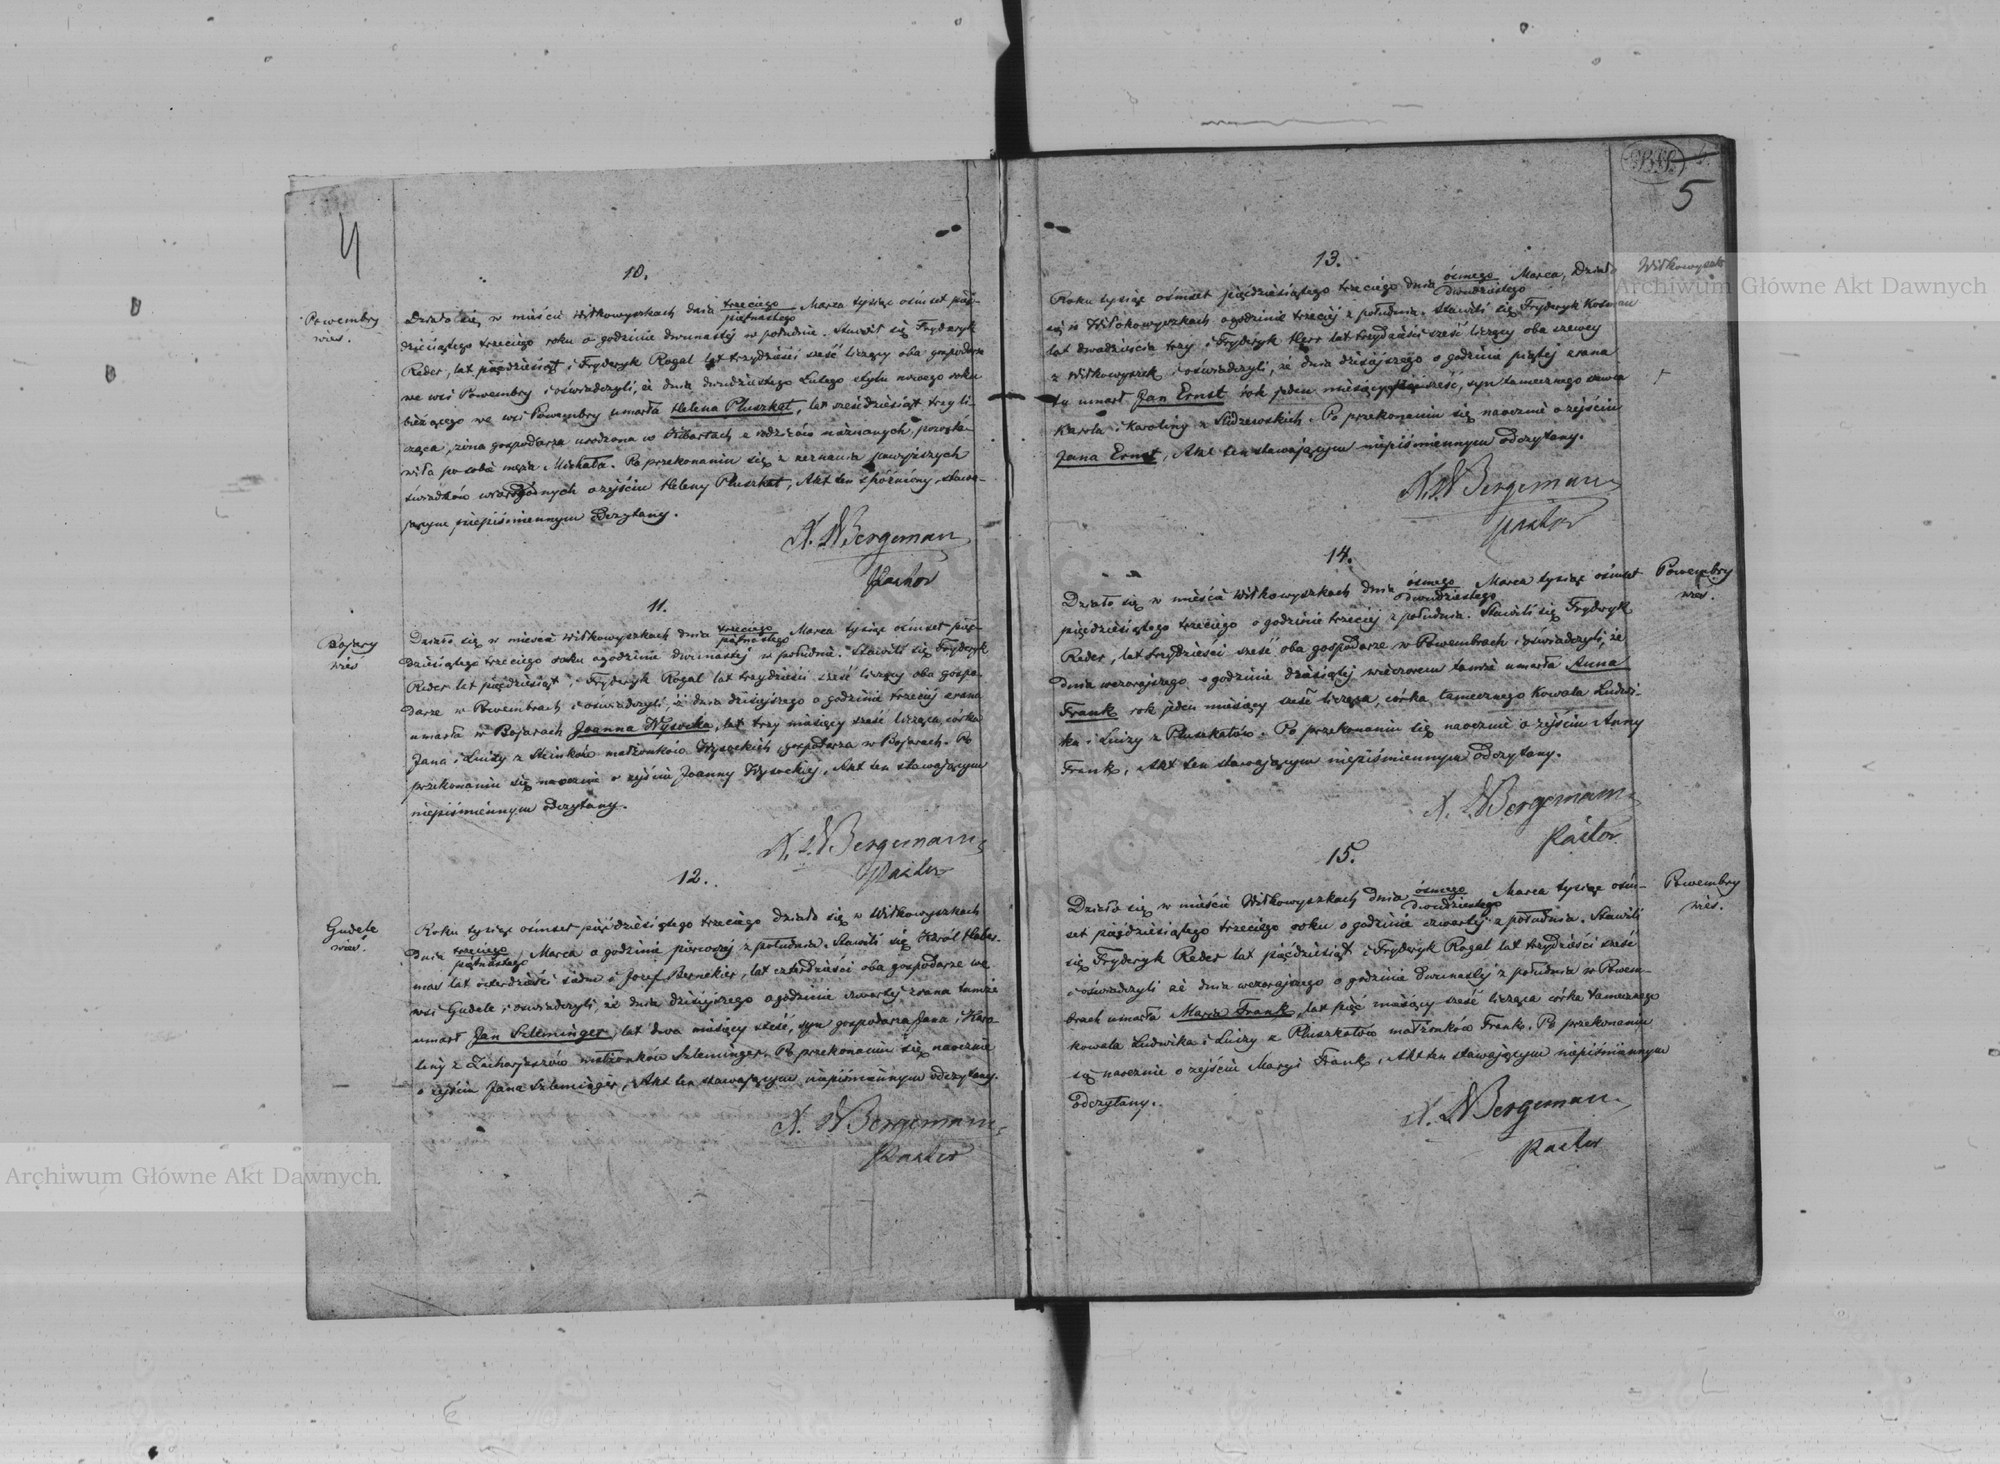 4
10.
Powembry
wieś.
Działo się w mieście Wiłkowyszkach dnia trzeciego/piętnastego Marca tysiąc ośmset pięć-
dziesiątego trzeciego roku o godzinie dwunastej w południe. Stawił się Fryderyk
Reder, lat pięćdziesiąt i Fryderyk Rogal lat trzydzieści sześć liczący oba gospodarze
we wsi Powembry i oświadczyli, że dnia dwudziestego Lutego stylu nowego roku
bieżącego we wsi Powembry umarła Helena Pluszkat, lat sześćdziesiąt trzy li-
cząca, żona gospodarza urodzona w Wibartach z rodziców nieznanych, pozosta-
wiła po sobie męża Michała. Po przekonaniu się z zeznania powyższych
świadków wiarogodnych o zejściu Heleny Pluszkat, Akt ten spóźniony stawa-
jącym niepiśmiennym odczytany.
X. W Bergeman
Pastor
11.
Bojary
wieś
Działo się w mieście Wiłkowyszkach dnia trzeciego/piętnastego Marca tysiąc ośmset pięć-
dziesiątego trzeciego roku o godzinie dwunastej w południe. Stawili się Fryderyk
Reder lat pięćdziesiąt i Fryderyk Rogal lat trzydzieści sześć liczący oba gospo-
darze w Powembrach i oświadczyli, iż dnia dzisiejszego o godzinie trzeciej zrana
umarła w Bojarach Joanna Wysocka, lat trzy miesięcy sześć licząca, córka
Jana i Luizy z Steinków małżonków Wysockich gospodarza w Bojarach. Po
przekonaniu się naocznie o zejściu Joanny Wysockiej, Akt ten stawającym
niepiśmiennym odczytany.
X. W Bergeman
Pastor
12.
Gudele
wieś.
Roku tysiąc ośmset pięćdziesiątego trzeciego działo się w Wiłkowyszkach
Dnia trzeciego/piętnastego Marca o godzinie pierwszej z południa. Stawili się Karol Haber-
man lat czterdzieści siedm i Jozef Bernekier, lat czterdzieści oba gospodarze we
wsi Gudele i oświadczyli, że dnia dzisiejszego o godzinie czwartej zrana tamże
umarł Jan Szleminger, lat dwa miesięcy sześć, syn gospodarza Jana i Karo-
liny z Zacharjaszów małżonków Szleminger. Po przekonaniu się naocznie
o zejściu Jana Szleminger, Akt ten stawającym niepiśmiennym odczytany.
X. W Bergeman
Pastor
5
13.
Wiłkowyszki
Roku tysiąc ośmset pięćdziesiątego trzeciego dnia ósmego/dwudziestego Marca, Działo
się w Wiłkowyszkach o godzinie trzeciej z południa. Stawili się Fryderyk Kosman
lat dwadzieścia trzy i Fryderyk Herr lat trzydzieści sześć liczący oba szewcy
z Wiłkowyszek i oświadczyli, że dnia dzisiejszego o godzinie piątej zrana
tu umarł Jan Ernst rok jeden miesięcy sześć, syn tamecznego szewca
Karola i Karoliny z Sudzewskich. Po przekonaniu się naocznie o zejściu
Jana Ernst, Akt ten stawającym niepiśmiennym odczytany.
X. W Bergeman
Pastor
14.
Powembry
wieś.
Działo się w mieście Wiłkowyszkach dnia ósmego/dwudziestego Marca tysiąc ośmset
pięćdziesiątego trzeciego o godzinie trzeciej z południa. Stawili się Fryderyk
Reder, lat trzydzieści sześć oba gospodarze w Powembrach i oświadczyli, że
dnia wczorajszego o godzinie dziesiątej wieczorem tamże umarła Anna
Frank rok jeden miesięcy sześć licząca, córka tamecznego Kowala Ludwi-
ka i Luizy z Pluszkatów. Po przekonaniu się naocznie o zejściu Anny
Frank, Akt ten stawającym niepiśmiennym odczytany.
X. W Bergeman
Pastor
15.
Powembry
wieś.
Działo się w mieście Wiłkowyszkach dnia ósmego/dwudziestego Marca tysiąc ośm-
set pięćdziesiątego trzeciego roku o godzinie czwartej z południa. Stawili
się Fryderyk Reder lat pięćdziesiąt i Fryderyk Rogal lat trzydzieści sześć
i oświadczyli że dnia wczorajszego o godzinie dwunastej z południa w Powem-
brach umarła Maria Frank, lat pięć miesięcy sześć licząca córka tamecznego
kowala Ludwika i Luizy z Pluszkatów małżonków Frank. Po przekonaniu
się naocznie o zejściu Maryi Frank, Akt ten stawającym niepiśmiennym
odczytany.
X. W Bergeman
Pastor
Archiwum Główne Akt Dawnych
Archiwum Główne Akt Dawnych